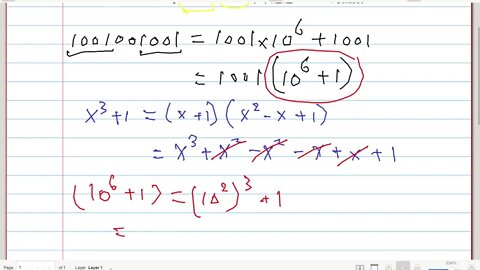 1001001001 = 1001×10⁶ + 1001
= 1001(10⁶ + 1)
x³ + 1 = (x + 1)(x² − x + 1)
= x³ + x² − x² − x + x + 1
(10⁶ + 1) = (10²)³ + 1
=
of 1 Layer: Layer 1